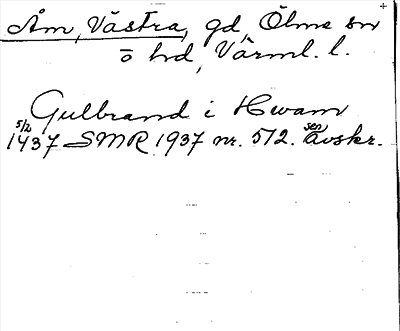 Åm, Västra, gd, Ölme sn
o hd, Värml. l.
Gulbrand i Hwam
5/2 1437 SMR 1937 nr. 572. sen avskr.